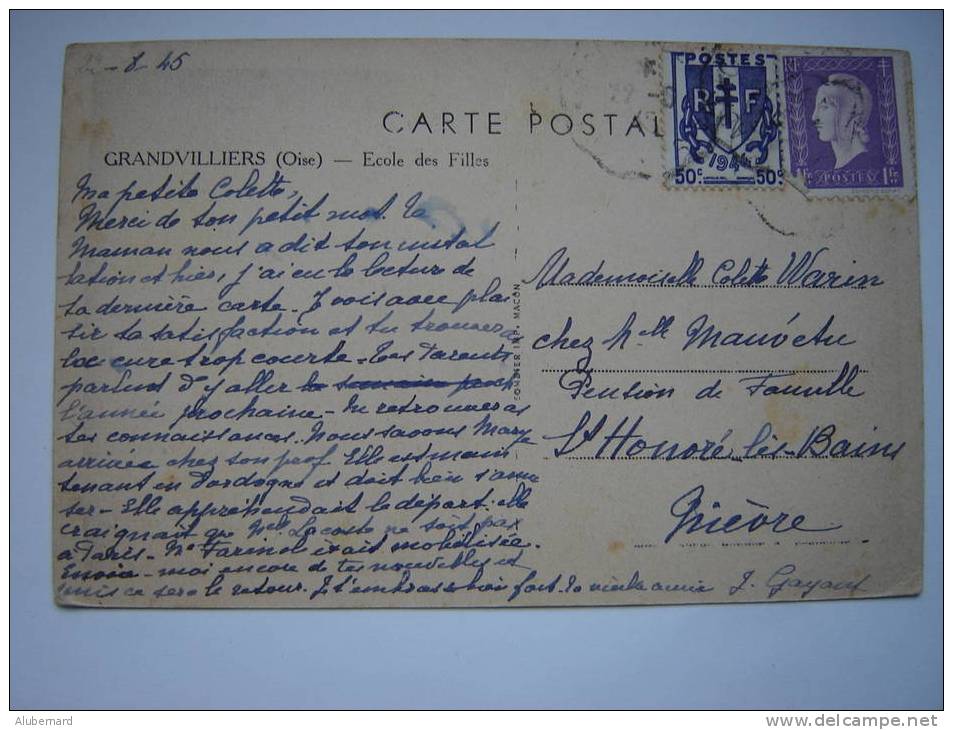 -8-45
CARTE POSTAL
POSTES
RF
1944
50c 50c
RF
POSTES 1F
GRANDVILLIERS (Oise) — Ecole des Filles
Ma petite Colette,
Merci de ton petit mot. Ta
Maman nous a dit ton instal
lation et hier, j'ai eu la lecture de
ta dernière carte. Je vois avec plai
sir ta satisfaction et tu trouveras
la cure trop courte - Tes Parents
parlent d'y aller la semaine proch
l'année prochaine - Tu retrouveras
tes connaissances. Nous savons Mary
arrivée chez son prof. Elle est main
tenant en Dordogne et doit bien s'amu
ser - Elle appréhendait le départ. elle
craignait que Melle Lacoste ne soit pas
à Paris - était mobilisée.
Envoie-moi encore de tes nouvelles et
puis ce sera le retour. Je t'embrasse bien fort. Ta vieille amie J. Gayant
COMBIER IMP. MACON
Mademoiselle Colette Warin
chez Melle
Pension de Famille
St Honoré les-Bains
Nièvre
Alubernard
www.delcampe.net